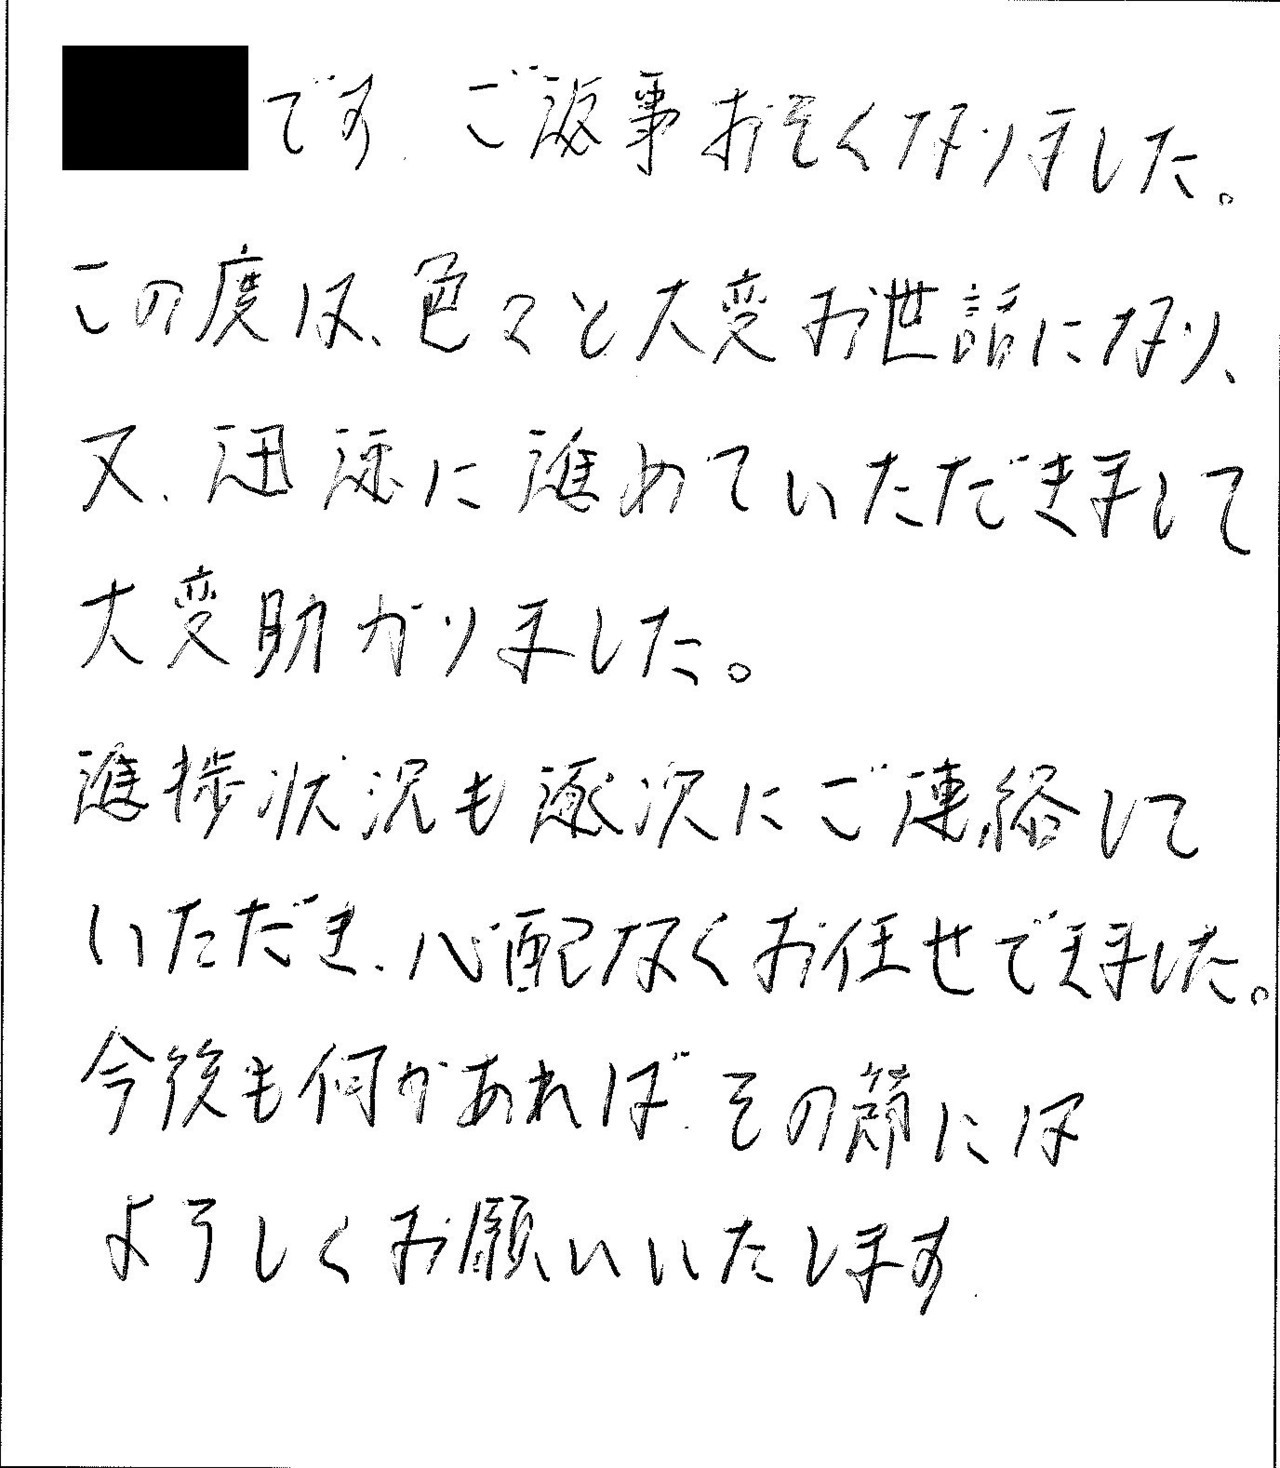 です．ご返事おそくなりました。
この度は、色々と大変お世話になり、
又、迅速に進めていただきまして
大変助かりました。
進捗状況も逐次にご連絡して
いただき、心配なくお任せできました。
今後も何かあれば、その節には
よろしくお願いいたします．